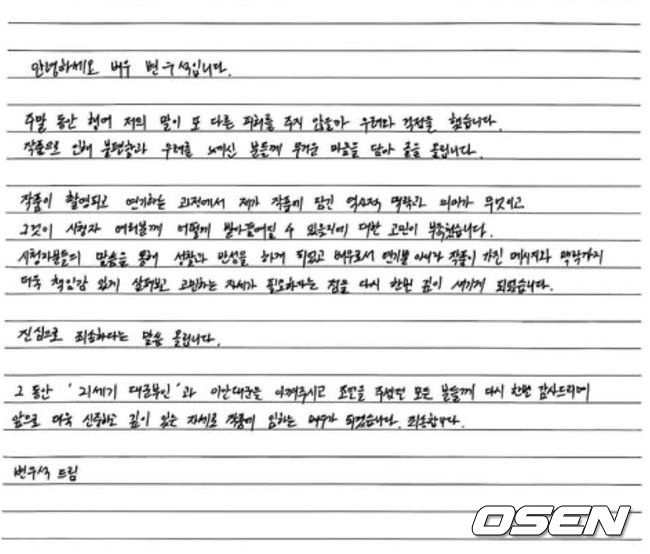 안녕하세요 배우 변우석입니다.
주말 동안 혹여 저의 말이 또 다른 피해를 주지 않을까 우려와 걱정을 했습니다.
작품으로 인해 불편함과 우려를 느끼신 분들께 무거운 마음을 담아 글을 올립니다.
작품이 촬영되고 연기하는 과정에서 제가 작품에 담긴 역사적 맥락과 의미가 무엇이고
그것이 시청자 여러분께 어떻게 받아들여질 수 있을지에 대한 고민이 부족했습니다.
시청자분들의 말씀을 통해 성찰과 반성을 하게 되었고 배우로서 연기뿐 아니라 작품이 가진 메시지와 맥락까지
더욱 책임감 있게 살펴보고 고민하는 자세가 필요하다는 점을 다시 한번 깊이 새기게 되었습니다.
진심으로 죄송하다는 말씀 올립니다.
그 동안 '21세기 대군부인'과 이안대군을 아껴주시고 조언을 주셨던 모든 분들께 다시 한번 감사드리며
앞으로 더욱 신중하고 깊이 있는 자세로 작품에 임하는 배우가 되겠습니다. 죄송합니다.
변우석 드림
OSEN